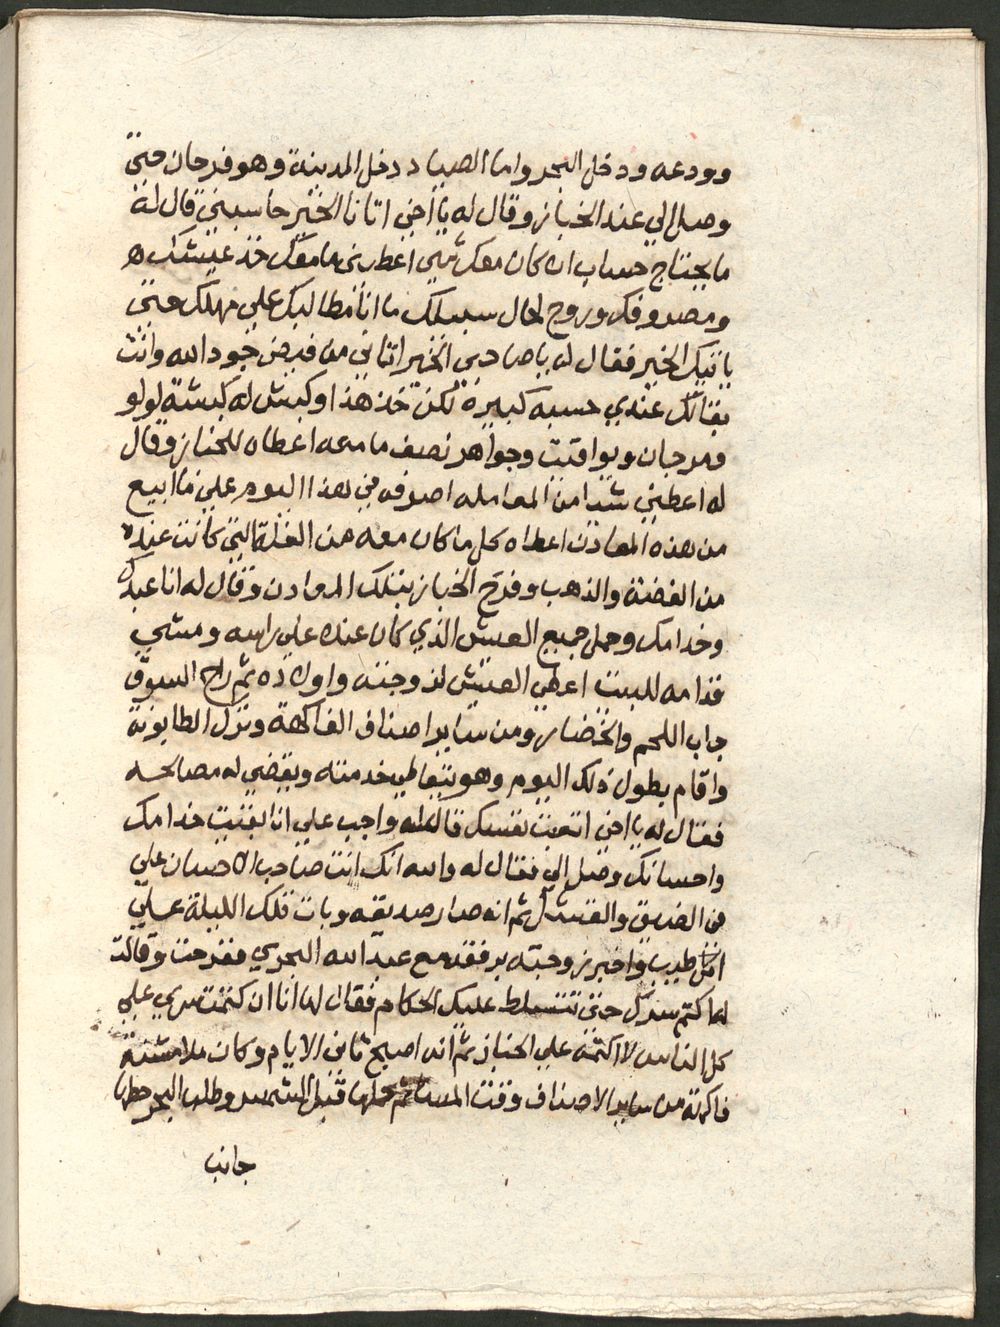 وودعه ودخل البحر واما الصياد دخل المدينة وهو فرحان حتى
وصل الي عند الخباز وقال له يا اخي اتانا الخير حاسبني قال له
ما يحتاج حساب ان كان معك شي اعطيني ما معك خذ عيشك
ومصروفك وروح لحال سبيلك ما انا مطالبك علي مهلك حتى
ياتيك الخير فقال له يا صاحبي الخير اتاني من فيض جود الله وانت
بقالك عندي حسبه كبيرة لكن خذ هذا وكبش له كبشة لولو
ومرجان ويواقيت وجواهر نصف ما معه اعطاه للخباز وقال
له اعطيني شيا من المعامله اصرفه في هذا اليوم علي ما ابيع
من هذه المعادن اعطاه كل ما كان معه من الغلة التي كانت عنده
من الفضة والذهب وفرح الخباز بتلك المعادن وقال له انا عبدك
وخدامك وحمل جميع العيش الذي كان عنده علي راسه ومشي
قدامه للبيت اعطي العيش لزوجته واولاده ثم راح السوق
جاب اللحم والخضار ومن ساير اصناف الفاكهة وترك الطابونة
واقام بطول ذلك اليوم وهو يتعاطي خدمته ويقضي له مصالحه
فقال له يا اخي اتعبت نفسك قال له واجب علي انا بقيت خدامك
واحسانك وصل الي فقال له والله انك انت صاحب الاحسان علي
في الضيق والقشل ثم انه صار صديقه وبات تلك الليلة علي
اكل طيب واخبر زوجته برفقته مع عبد الله البحري ففرحت وقالت
له اكتم سرك حتى تتسلط عليك الحكام فقال لها انا ان كتمت سري علي
كل الناس لا اكتمه علي الخباز ثم انه اصبح ثاني الايام وكان ملا مشنة
فاكهة من ساير الاصناف وقت المسا ثم حملها قبل الشمس وطلب البحر حطها
جانب